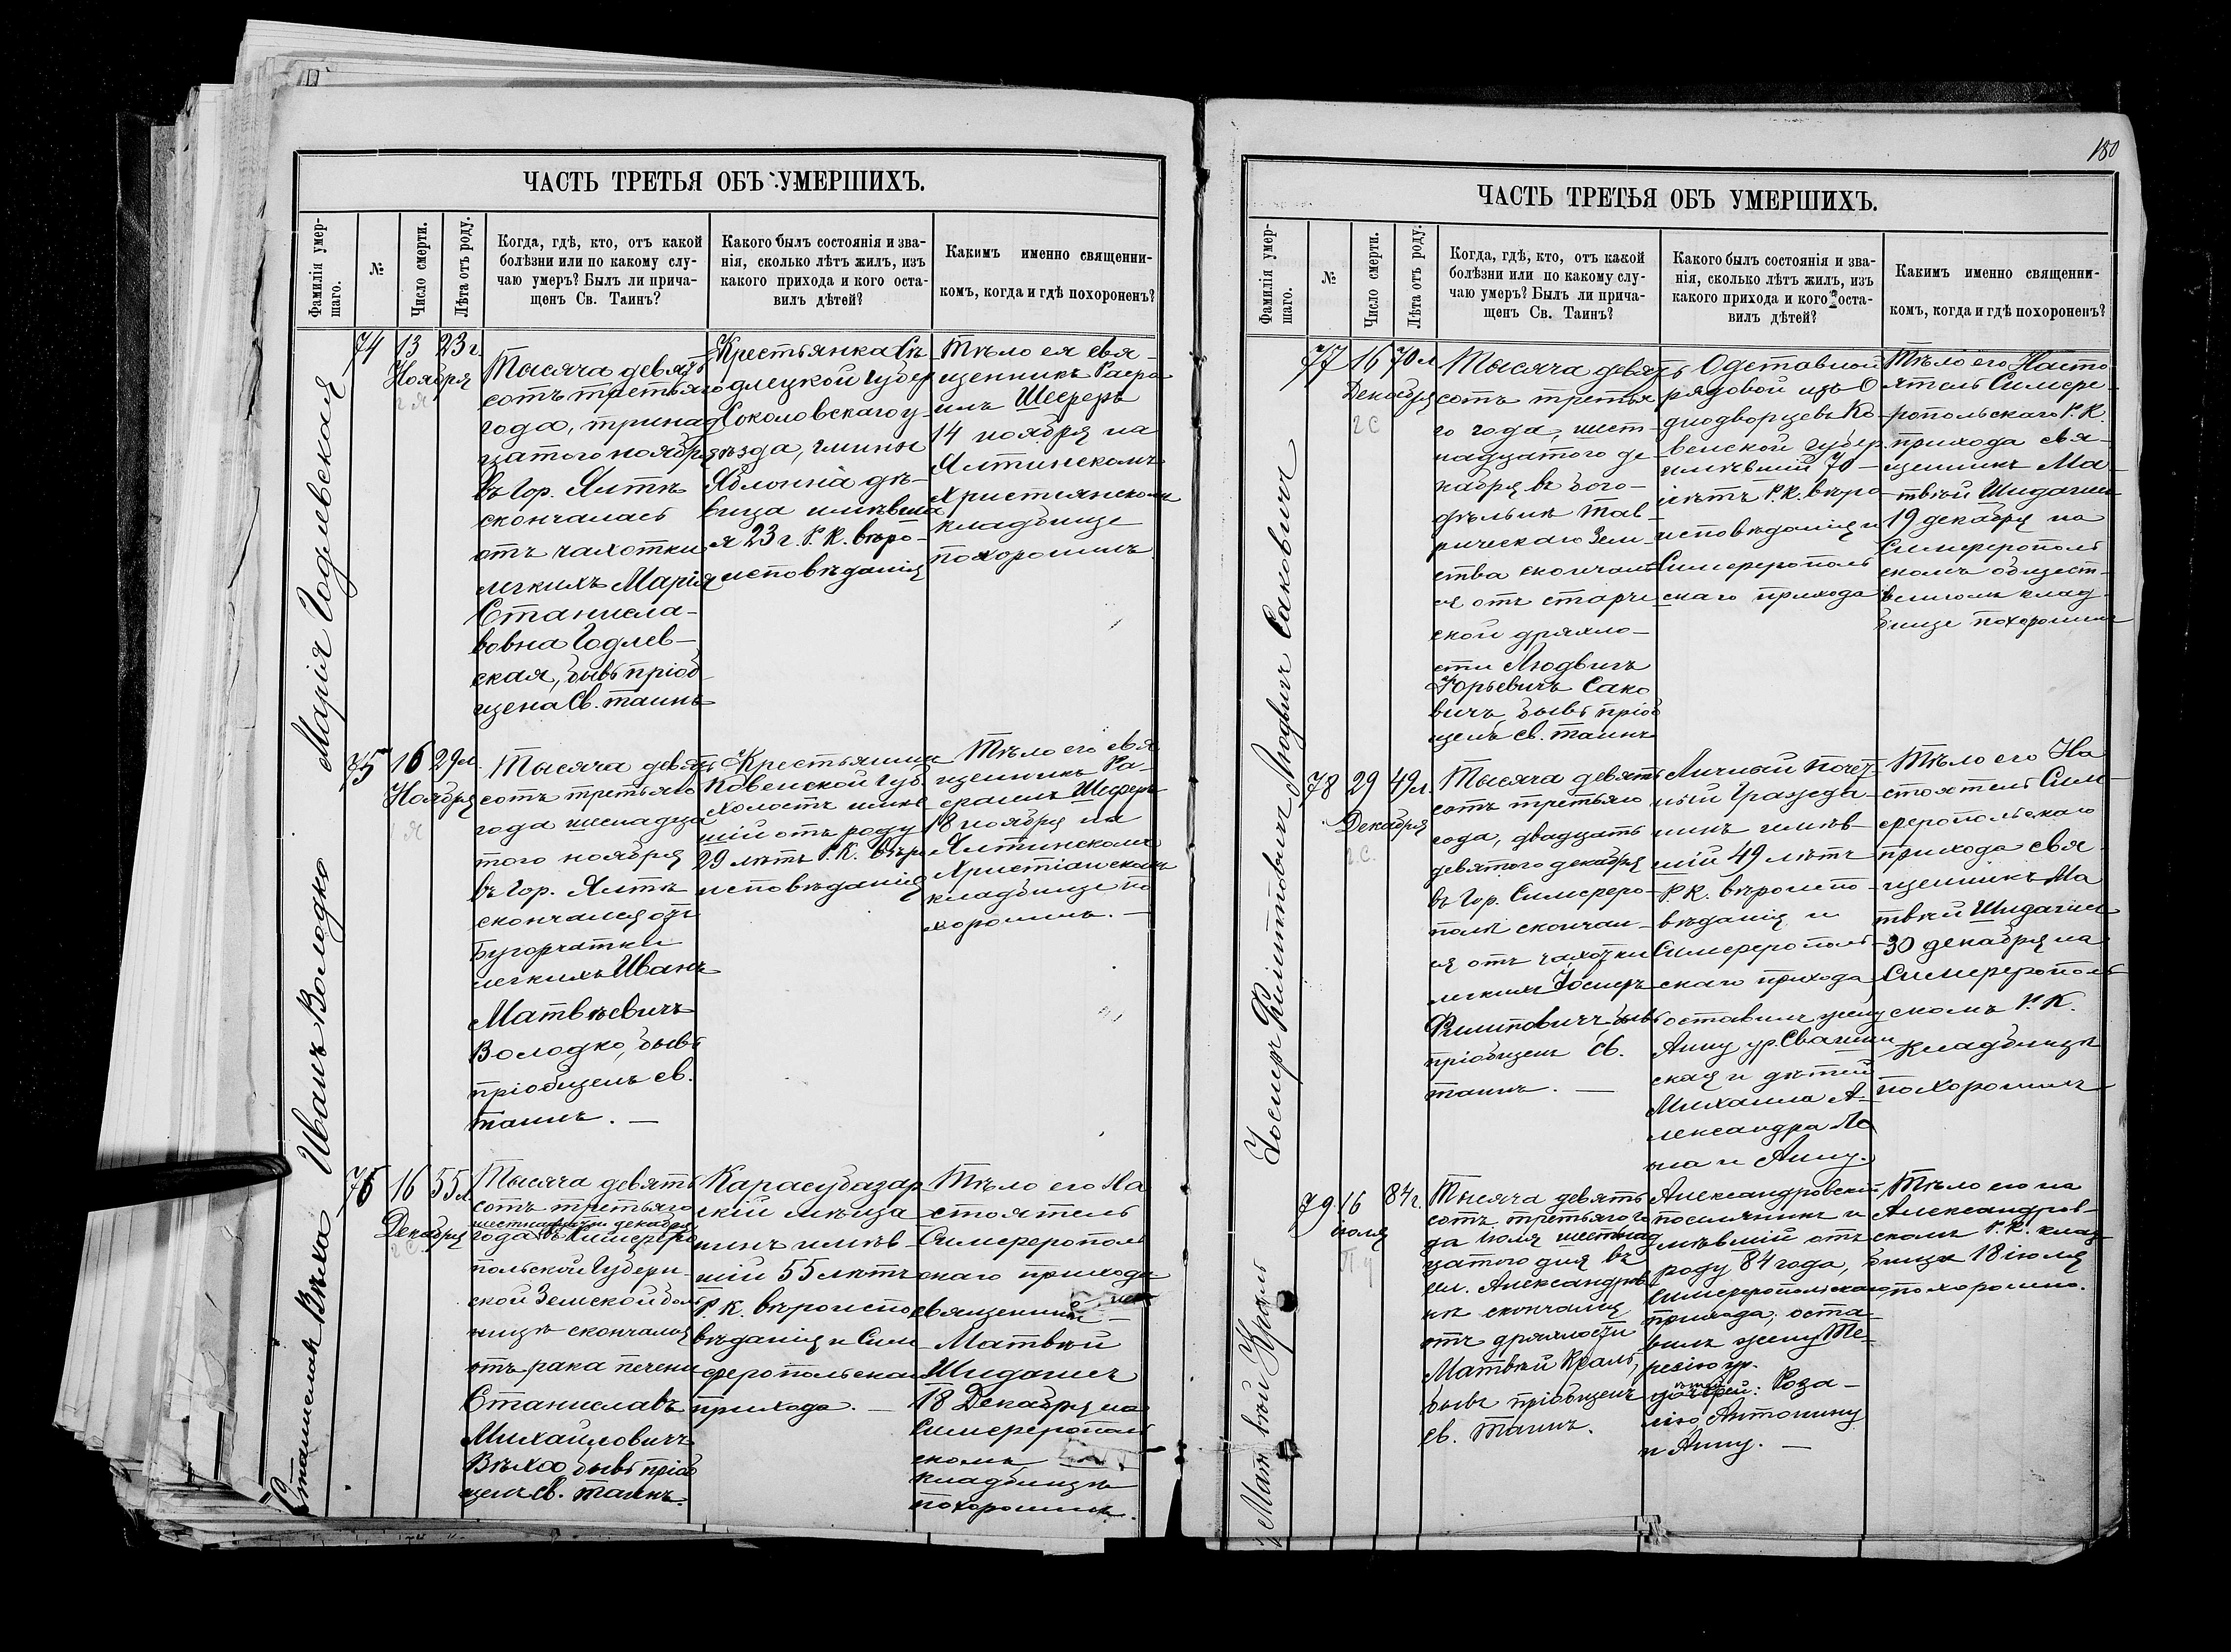 ЧАСТЬ ТРЕТЬЯ ОБЪ УМЕРШИХЪ.
Фамилія умер-
шаго.
№
Число смерти.
Лѣта отъ роду.
Когда, гдѣ, кто, отъ какой
болѣзни или по какому слу-
чаю умеръ? Былъ ли прича-
щенъ Св. Таинъ?
Какого былъ состоянія и зва-
нія, сколько лѣтъ жилъ, изъ
какого прихода и кого оста-
вилъ дѣтей?
Какимъ именно священни-
комъ, когда и гдѣ похороненъ?
Марія Годлевская
74
13
Ноября
23 г.
Тысяча девять
сотъ третьяго
года, тринад
цатого ноября
въ гор. Ялтѣ
скончалась
отъ чахотки
легкихъ Марія
Станисла-
вовна Годлев-
ская, бывъ пріоб
щена Св. таинъ
Крестьянка Сѣ
длецкой губер
Соколовскаго у-
ѣзда, гмины
Яблонна дѣ-
вица имѣвша
я 23 г. Р. К. вѣро-
исповѣданія
Тѣло ея свя-
щенникъ Рафа
илъ Шеферъ
14 ноября на
Ялтинскомъ
Христіянском
кладбище
похоронилъ
Иванъ Володко
75
16
Ноября
29 л.
Тысяча девять
сотъ третьяго
года шеснадца
того ноября
въ гор. Ялтѣ
скончался отъ
Бугорчатки
легкихъ Иванъ
Матвѣевичъ
Володко, бывъ
пріобщенъ св.
таинъ. —
Крестьянинъ
Ковенской губ.
холостъ имѣв
шій отъ роду
29 лѣтъ Р. К. вѣро
исповѣданія
Тѣло его свя
щенникъ Ра-
фаилъ Шеферъ
18 ноября на
Ялтинскомъ
Христіанскомъ
кладбище по
хоронилъ. —
Станиславъ Вѣхо
76
16
Декабря
55 л.
Тысяча девять
сотъ третьяго
шестнадцати декабря
года въ Симферо
польской Губерн
ской Земской боль
ницѣ скончался
отъ рака печени
Станиславъ
Михайловичъ
Вѣхо бывъ пріоб
щенъ св. таинъ.
Карасубазар
скій мѣща
нинъ имѣв
шій 55 лѣтъ
Р. К. вѣроиспо
вѣданія и Сим
феропольскаго
прихода. —
Тѣло его На
стоятель
Симферополь
скаго прихода
священникъ
Матвѣй
Шидагисъ
18 Декабря на
Симферополь
скомъ
кладбищѣ
похоронилъ.
180
ЧАСТЬ ТРЕТЬЯ ОБЪ УМЕРШИХЪ.
Фамилія умер-
шаго.
№
Число смерти.
Лѣта отъ роду.
Когда, гдѣ, кто, отъ какой
болѣзни или по какому слу-
чаю умеръ? Былъ ли прича-
щенъ Св. Таинъ?
Какого былъ состоянія и зва-
нія, сколько лѣтъ жилъ, изъ
какого прихода и кого оста-
вилъ дѣтей?
Какимъ именно священни-
комъ, когда и гдѣ похороненъ?
Людвигъ Саковичъ
77
16
Декабря
70 л
Тысяча девять
сотъ третья
го года, шест-
надцатого де-
кабря въ бого-
дѣльнѣ Тав-
рическаго Зем-
ства скончал
ся отъ старче
ской дряхло-
сти Людвигъ
Юрьевичъ Сако
вичъ бывъ пріоб
щенъ св. таинъ
Отставной
рядовой изъ О
днодворцевъ Ко-
венской губер.
имѣвшій 70
лѣтъ Р. К. вѣро
исповѣданія и
Симферополь
скаго прихода
Тѣло его Насто
ятель Симфе-
ропольскаго Р. К.
прихода свя-
щенникъ Ма-
твѣй Шидагисъ
19 декабря на
Симферополь
скомъ общест-
венномъ клад-
бище похоронилъ
Іосифъ Филипповичъ
78
29
Декабря
49 л.
Тысяча девять
сотъ третьяго
года, двадцать
девятого декабря
въ гор. Симферо-
полѣ скончал-
ся отъ чахотки
легкихъ Іосифъ
Филипповичъ, бывъ
пріобщенъ Св.
таинъ. —
Личный почет-
ный Гражда-
нинъ имѣв-
шій 49 лѣтъ
Р. К. вѣроиспо-
вѣданія и
Симферополь-
скаго прихода
оставилъ жену
Анну ур.
ская и дѣтей
Михаила А-
лександра
и Анну.
Тѣло его На
стоятель Сим-
феропольскаго
прихода свя-
щенникъ Ма
твѣй Шидагисъ
30 декабря на
Симферополь
скомъ Р. К.
кладбищѣ
похоронилъ
Матвѣй Краль
79
16
іюля
84 г.
Тысяча девять
сотъ третьяго го
да іюля шестнад
цатого дня въ
им. Александров
кѣ скончался
отъ дряхлости
Матвѣй Краль,
бывъ пріобщенъ
св. Таинъ.
Александровскій
поселянинъ и
мѣвшій отъ
роду 84 года,
Симферопольскаго
прихода, оста-
вилъ жену Те-
резію ур.
дочерей: Роза-
лію, Антонину
и Анну. —
Тѣло его на
Александров-
скомъ Р. К. клад
бищѣ 18 іюля
похоронено.